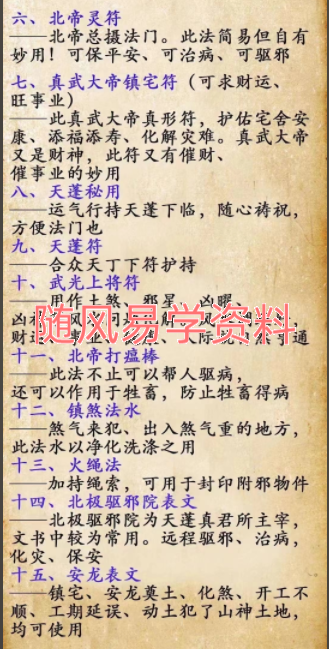 六、北帝灵符
——北帝总摄法门。此法简易但自有
妙用！可保平安、可治病、可驱邪
七、真武大帝镇宅符（可求财运、
旺事业）
——此真武大帝真形符，护佑宅舍安
康、添福添寿、化解灾难。真武大帝
又是财神，此符又有催财、
催事业的妙用
八、天蓬秘用
——运气行持天蓬下临，随心祷祝，
方便法门也
九、天蓬符
——合众天丁下符护持
十、武光上将符
——用作土煞、邪星、凶曜、
随风易学资料
十一、北帝打瘟棒
——此法不止可以帮人驱病，
还可以作用于牲畜，防止牲畜得病
十二、镇煞法水
——煞气来犯、出入煞气重的地方，
此法水以净化洗涤之用
十三、火绳法
——加持绳索，可用于封印附邪物件
十四、北极驱邪院表文
——北极驱邪院为天蓬真君所主宰，
文书中较为常用。远程驱邪、治病，
化灾、保安
十五、安龙表文
——镇宅、安龙奠土、化煞、开工不
顺、工期延误、动土犯了山神土地，
均可使用